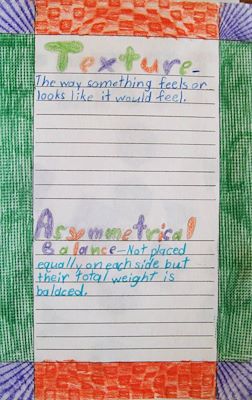 Texture-
The way something feels or
looks like it would feel.
Asymmetrical
Balance-Not placed
equally on each side but
their total weight is
balaced.